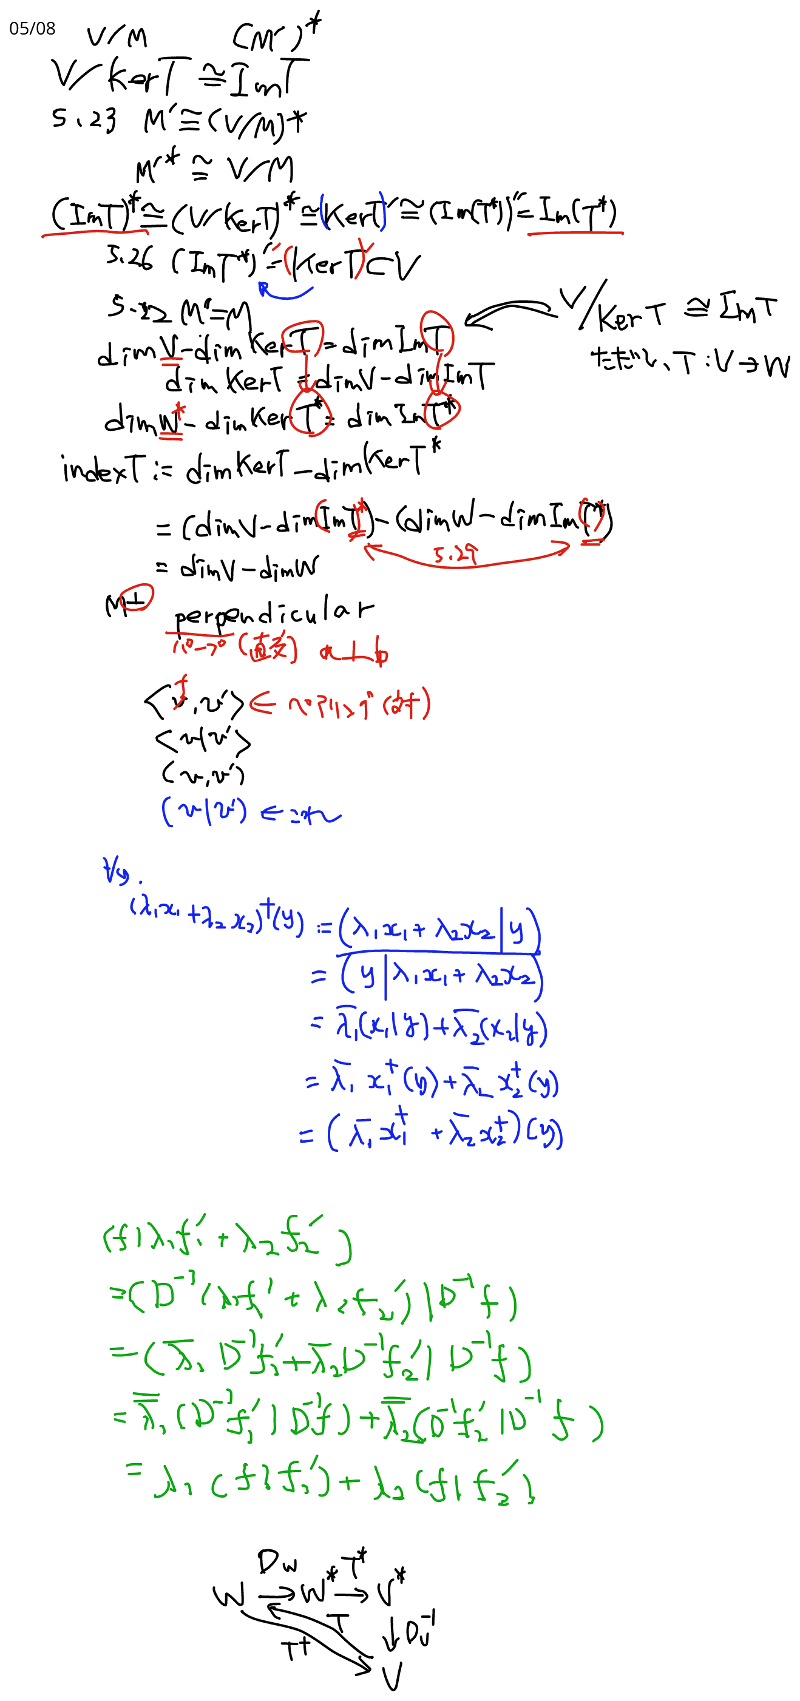 05/08
V/M (M')*
V/KerT ≅ ImT
5.23 M' ≅ (V/M)*
M'* ≅ V/M
(ImT)* ≅ (V/KerT)* ≅ (KerT)' ≅ (Im(T*))'' = Im(T*)
5.26 (ImT*)'' = (KerT)' ⊂ V
5.22 M'' = M
V/KerT ≅ ImT
ただし、T : V → W
dimV - dimKerT = dimImT
dimKerT = dimV - dimImT
dimW* - dimKerT* = dimImT*
indexT := dimKerT - dimKerT*
= (dimV - dimImT*) - (dimW - dimIm(T))
5.29
= dimV - dimW
M⊥
perpendicular
パープ (直交) a⊥b
f
<v, v'> ← ペアリング (対)
<v|v'>
(v, v')
(v|v') ←
∀y.
(λ₁x₁ + λ₂x₂)†(y) := (λ₁x₁ + λ₂x₂|y)
= (y|λ₁x₁ + λ₂x₂)
= λ̄₁(x₁|y) + λ̄₂(x₂|y)
= λ̄₁ x₁†(y) + λ̄₂ x₂†(y)
= (λ̄₁x₁† + λ̄₂x₂†)(y)
(f|λ₁f₁' + λ₂f₂')
= (D⁻¹(λ₁f₁' + λ₂f₂')|D⁻¹f)
= (λ̄₁D⁻¹f₁' + λ̄₂D⁻¹f₂'|D⁻¹f)
= λ̿₁(D⁻¹f₁'|D⁻¹f) + λ̿₂(D⁻¹f₂'|D⁻¹f)
= λ₁(f|f₁') + λ₂(f|f₂')
D_W T*
W → W* → V*
T ↓ D_V⁻¹
T†
V